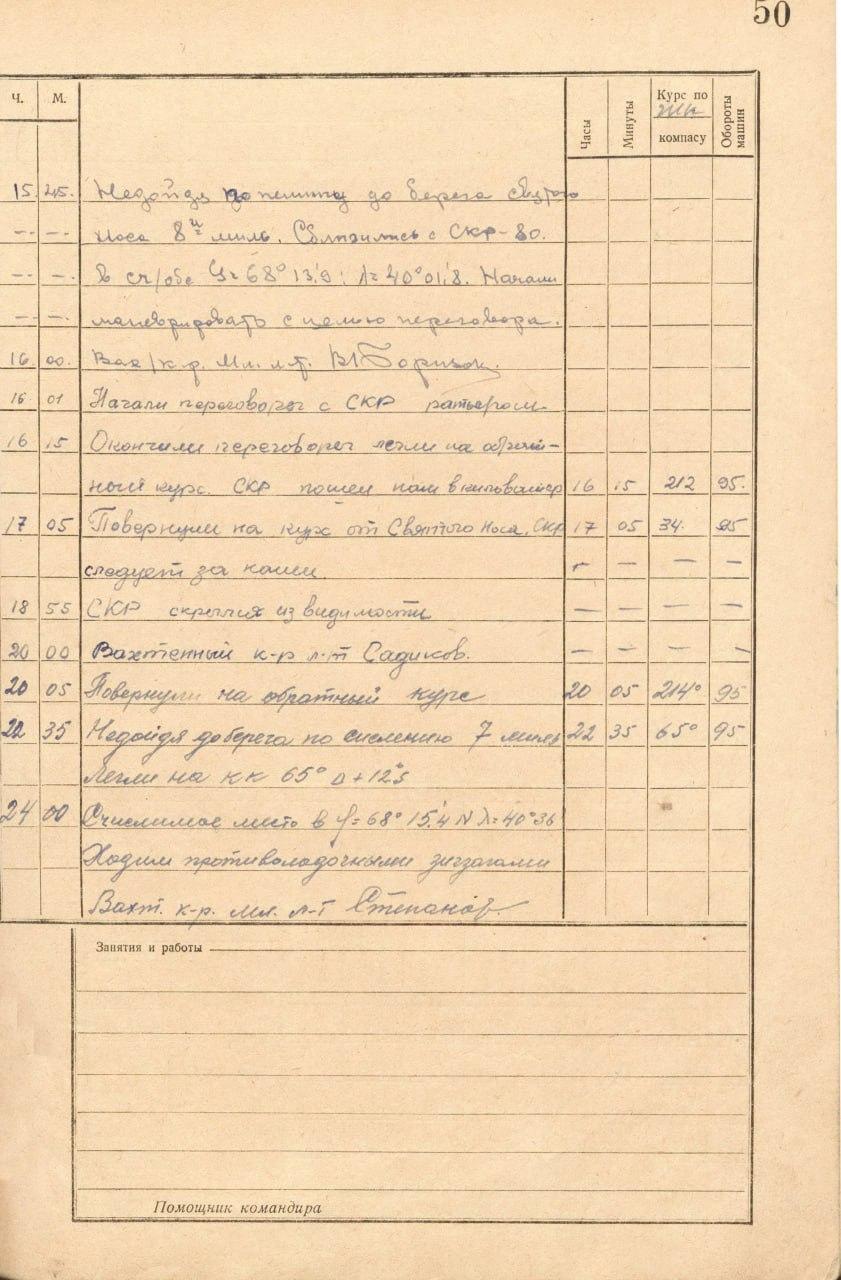 50
Ч. М. Часы Минуты Курс по компасу Обороты машин
15. 45. Недойдя по пелингу до берега святого
-- -- Носа 8 миль. Сблизились с СКР-80.
-- -- В сч/обс φ=68° 13',9; λ=40°01',8. Начали
-- -- маневрировать с целью переговора.
16 00. Вах/к.р. Мл. л-т.
16 01 Начали переговоры с СКР ратьером
16 15 Окончили переговоры легли на обрат-
ный курс. СКР пошел нам в кильватер 16 15 212 95.
17 05 Повернули на курс от Святого Носа. СКР 17 05 34. 95
следует за нами. — — — —
18 55 СКР скрылся из видимости — — — —
20 00 Вахтенный к-р л-т Садиков. — — — —
20 05 Повернули на обратный курс 20 05 214° 95
22 35 Недойдя до берега по счислению 7 миль 22 35 65° 95
Легли на КК 65° Δ+12°,5
24 00 Счислимое место в φ=68° 15',4 N λ=40°36'
Ходим противолодочными зигзагами
Вахт. к-р. мл. л-т Степанов
Занятия и работы
Помощник командира